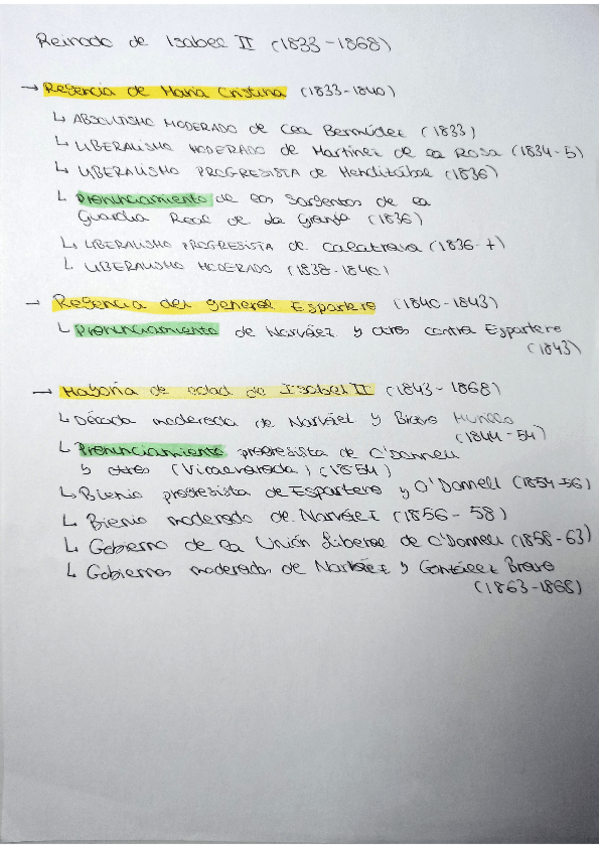 Reinado de Isabel II (1833-1868)
→ Regencia de María Cristina (1833-1840)
↳ ABSOLUTISMO MODERADO de Cea Bermúdez (1833)
↳ LIBERALISMO MODERADO de Martínez de la Rosa (1834-5)
↳ LIBERALISMO PROGRESISTA de Mendizábal (1836)
↳ Pronunciamiento de los Sargentos de la
Guardia Real de la Granja (1836)
↳ LIBERALISMO PROGRESISTA de Calatrava (1836-7)
↳ LIBERALISMO MODERADO (1838-1840)
→ Regencia del general Espartero (1840-1843)
↳ Pronunciamiento de Narváez y otros contra Espartero
(1843)
→ Mayoría de edad de Isabel II (1843-1868)
↳ Década moderada de Narváez y Bravo Murillo
(1844-54)
↳ Pronunciamiento progresista de O'Donnell
y otros (Vicalvarada) (1854)
↳ Bienio progresista de Espartero y O'Donnell (1854-56)
↳ Bienio moderado de Narváez (1856-58)
↳ Gobierno de la Unión Liberal de O'Donnell (1858-63)
↳ Gobiernos moderados de Narváez y González Bravo
(1863-1868)